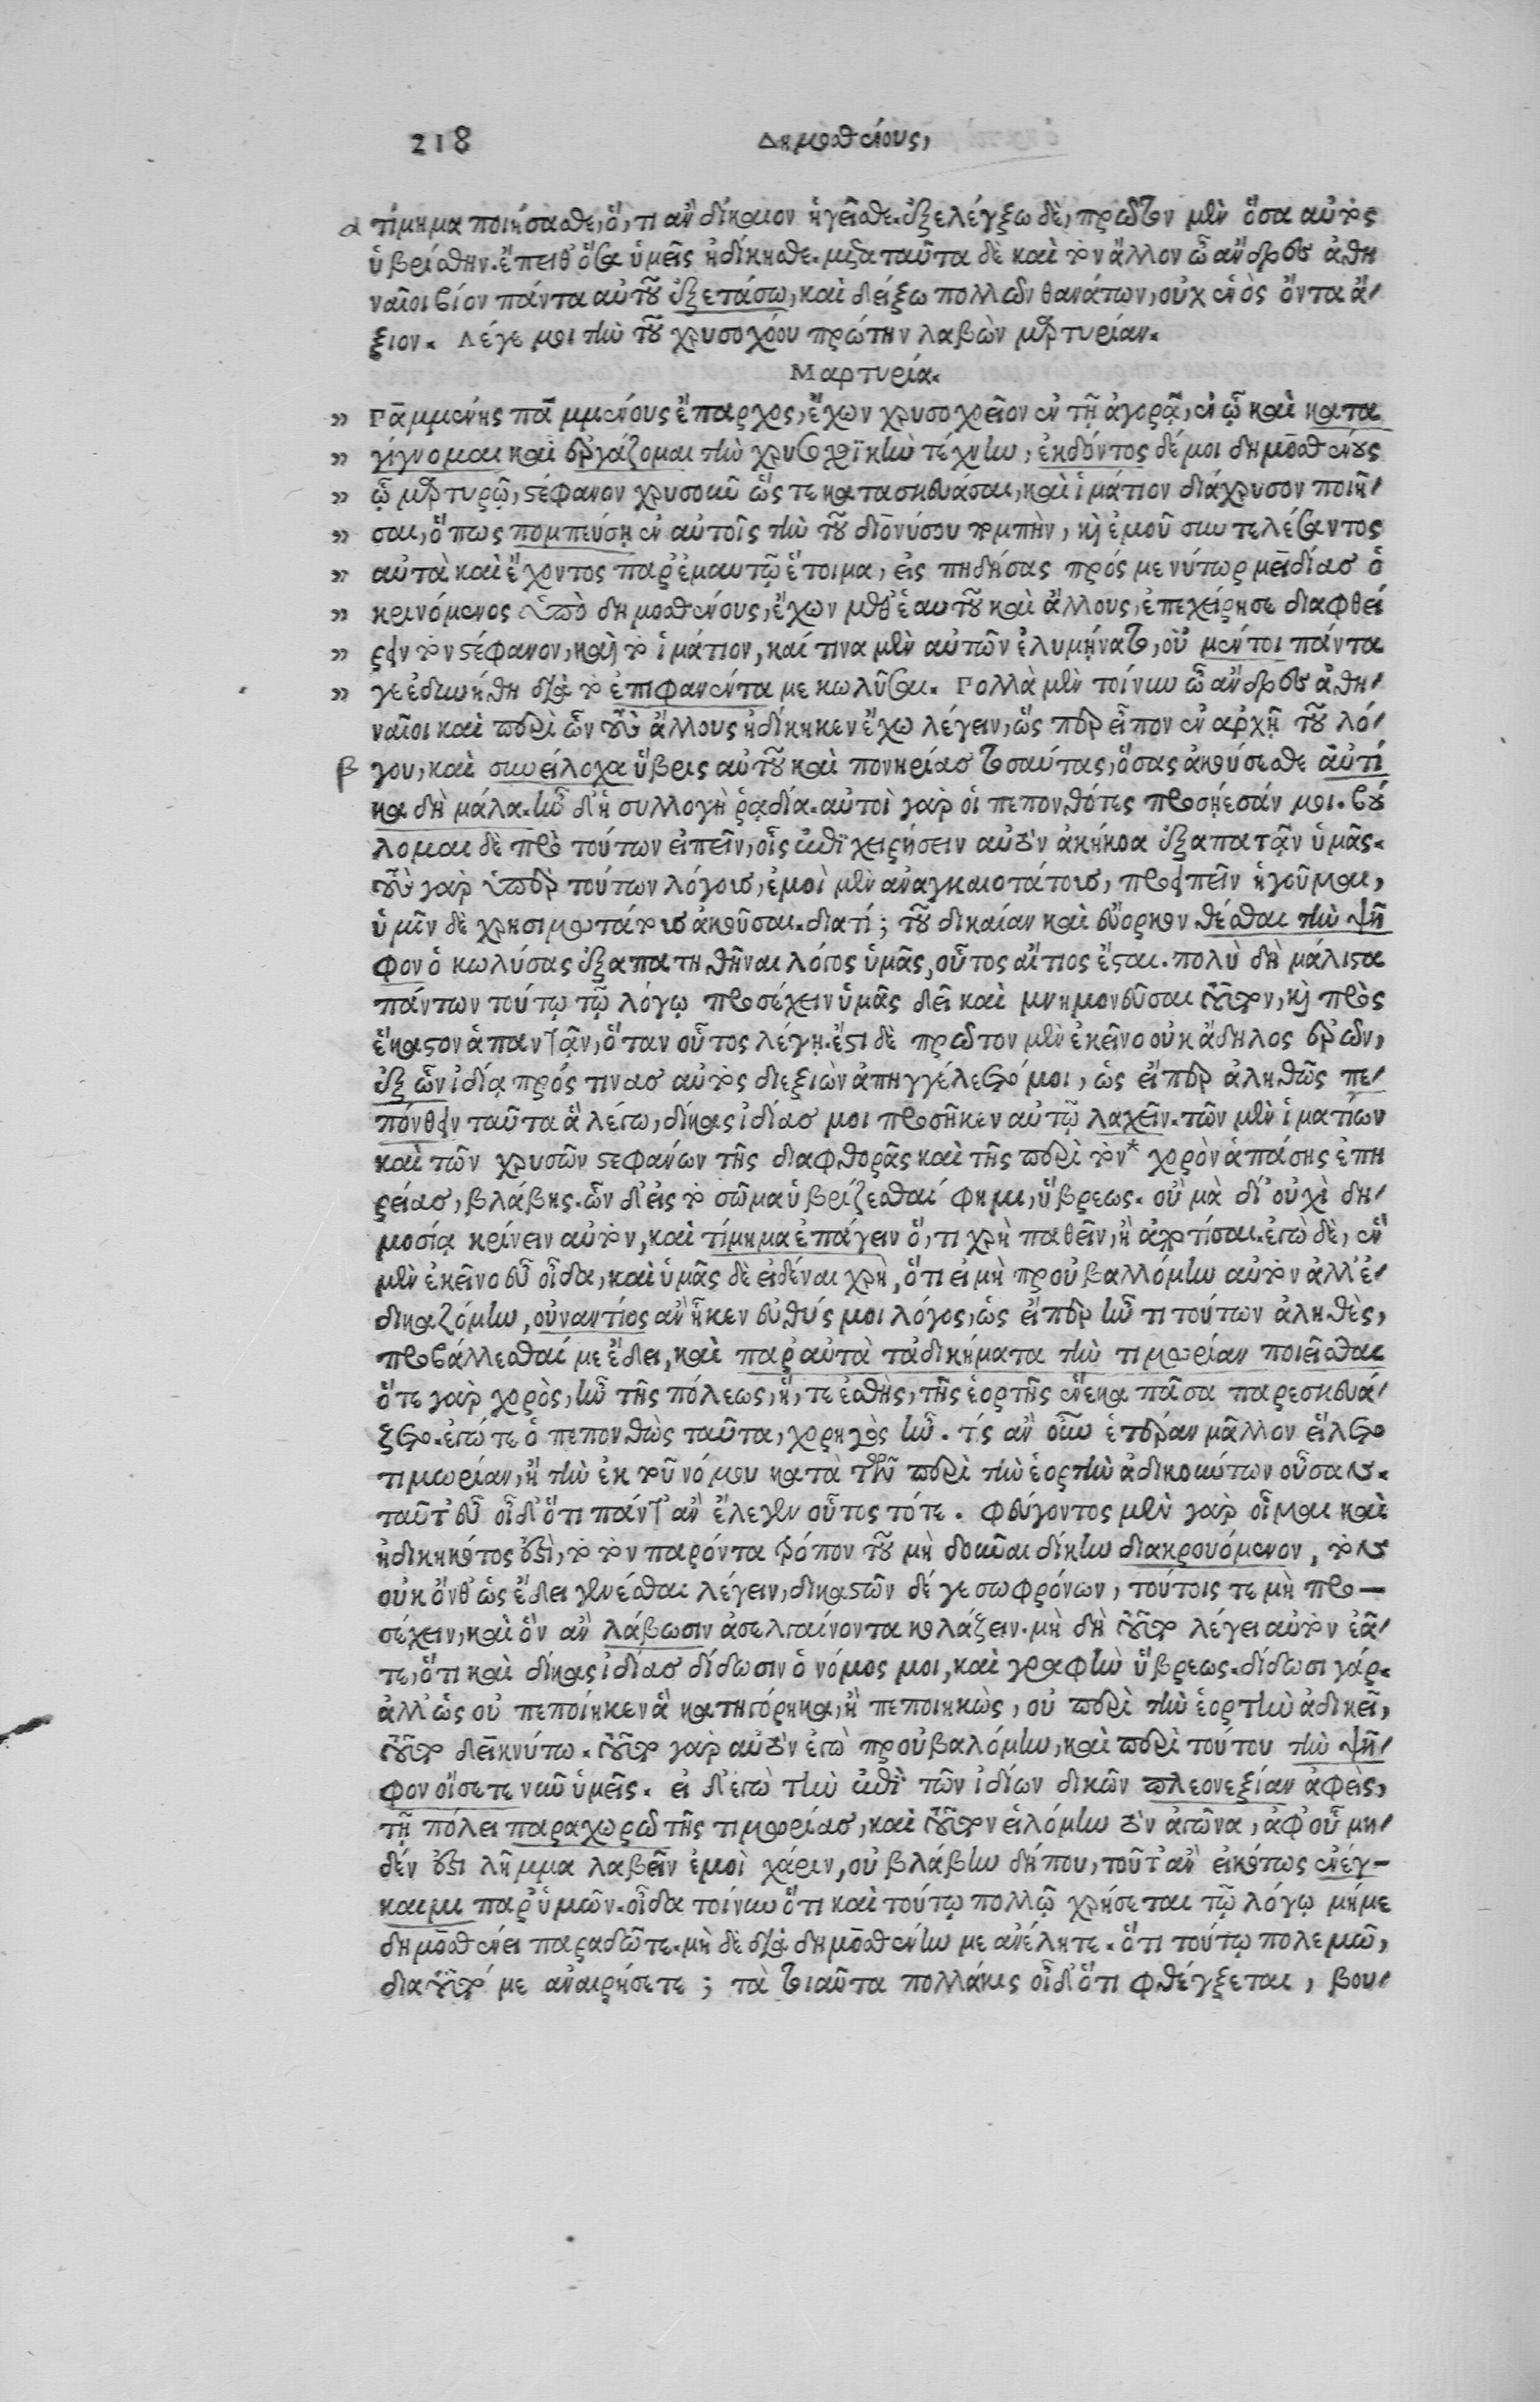 218 Δημοσθένους,
α τίμημα ποιήσασθε, ὅ, τι ἂν δίκαιον ἡγεῖσθε. ἐξελέγξω δὲ, πρῶτον μὲν ὅσα αὐτὸς
ὑβρίσθην. ἔπειθ' ὅσα ὑμεῖς ἠδίκησθε. μετὰ ταῦτα δὲ καὶ τὸν ἄλλον ὦ ἄνδρες ἀθη
ναῖοι βίον πάντα αὐτοῦ ἐξετάσω, καὶ δείξω πολλῶν θανάτων, οὐχ ἑνὸς ὄντα ἄ-
ξιον. Λέγε μοι τὴν τοῦ χρυσοχόου πρώτην λαβὼν μαρτυρίαν.
Μαρτυρία.
» Γαμμένης παμμένους ἔπαρχος, ἔχων χρυσοχεῖον ἐν τῇ ἀγορᾷ, ἐν ᾧ καὶ κατα
» γίγνομαι καὶ ἐργάζομαι τὴν χρυσοχοϊκὴν τέχνην, ἐκδόντος δέ μοι δημοσθένους
» ᾧ μαρτυρῶ, στέφανον χρυσοῦν ὥς τε κατασκευάσαι, καὶ ἱμάτιον διάχρυσον ποιῆ-
» σαι, ὅπως πομπεύσῃ ἐν αὐτοῖς τὴν τοῦ διονύσου πομπὴν, καὶ ἐμοῦ συντελέσαντος
» αὐτὰ καὶ ἔχοντος παρ' ἐμαυτῷ ἕτοιμα, εἰς πηδήσας πρός με νύκτωρ μειδίας ὁ
» κρινόμενος ὑπὸ δημοσθένους, ἔχων μεθ' ἑαυτοῦ καὶ ἄλλους, ἐπεχείρησε διαφθεί
» ρειν τὸν στέφανον, καὶ τὸ ἱμάτιον, καί τινα μὲν αὐτῶν ἐλυμήνατο, οὐ μέντοι πάντα
» γε ἐδυνήθη διὰ τὸ ἐπιφανέντα με κωλῦσαι. Πολλὰ μὲν τοίνυν ὦ ἄνδρες ἀθη-
ναῖοι καὶ περὶ ὧν τοὺς ἄλλους ἠδίκηκεν ἔχω λέγειν, ὥς περ εἶπον ἐν ἀρχῇ τοῦ λό-
β γου, καὶ συνείλοχα ὕβρεις αὐτοῦ καὶ πονηρίας τοσαύτας, ὅσας ἀκούσεσθε αὐτί
κα δὴ μάλα. ἦν δ' ἡ συλλογὴ ῥᾳδία. αὐτοὶ γὰρ οἱ πεπονθότες προσῄεσάν μοι. βού
λομαι δὲ πρὸ τούτων εἰπεῖν, οἷς ἐπιχειρήσειν αὐτὸν ἀκήκοα ἐξαπατᾶν ὑμᾶς.
τοὺς γὰρ ὑπὲρ τούτων λόγους, ἐμοὶ μὲν ἀναγκαιοτάτους, προειπεῖν ἡγοῦμαι,
ὑμῖν δὲ χρησιμωτάτους ἀκοῦσαι. διατί; τοῦ δικαίαν καὶ εὔορκον θέσθαι τὴν ψῆ
φον ὁ κωλύσας ἐξαπατηθῆναι λόγος ὑμᾶς, οὗτος αἴτιος ἔσται. πολὺ δὴ μάλιστα
πάντων τούτῳ τῷ λόγῳ προσέχειν ὑμᾶς δεῖ καὶ μνημονεῦσαι τοῦτον, καὶ πρὸς
ἕκαστον ἀπαντᾶν, ὅταν οὗτος λέγῃ. ἔστι δὲ πρῶτον μὲν ἐκεῖνο οὐκ ἄδηλος ἐρῶν,
ἐξ ὧν ἰδίᾳ πρός τινας αὐτὸς διεξιὼν ἀπηγγέλετό μοι, ὡς εἴπερ ἀληθῶς πε-
πόνθειν ταῦτα ἃ λέγω, δίκας ἰδίας μοι προσῆκεν αὐτῷ λαχεῖν. τῶν μὲν ἱματίων
καὶ τῶν χρυσῶν στεφάνων τῆς διαφθορᾶς καὶ τῆς περὶ τὸν* χορὸν ἁπάσης ἐπη
ρείας, βλάβης. ὧν δ' εἰς τὸ σῶμα ὑβρίζεσθαί φημι, ὕβρεως. οὐ μὰ δί' οὐχὶ δη-
μοσίᾳ κρίνειν αὐτὸν, καὶ τίμημα ἐπάγειν ὅ, τι χρὴ παθεῖν, ἢ ἀποτίσαι. ἐγὼ δὲ, ἓν
μὲν ἐκεῖνο εὖ οἶδα, καὶ ὑμᾶς δὲ εἰδέναι χρὴ, ὅτι εἰ μὴ προὐβαλλόμην αὐτὸν ἀλλ' ἐ-
δικαζόμην, οὑναντίος ἂν ἧκεν εὐθύς μοι λόγος, ὡς εἴπερ ἦν τι τούτων ἀληθὲς,
προβάλλεσθαί με ἔδει, καὶ παρ' αὐτὰ τἀδικήματα τὴν τιμωρίαν ποιεῖσθαι
ὅτε γὰρ χορὸς, ἦν τῆς πόλεως, ἥ, τε ἐσθὴς, τῆς ἑορτῆς ἕνεκα πᾶσα παρεσκευά-
ζετο. ἐγώ τε ὁ πεπονθὼς ταῦτα, χορηγὸς ἦν. τίς ἂν οὖν ἑτέραν μᾶλλον εἵλετο
τιμωρίαν, ἢ τὴν ἐκ τοῦ νόμου κατὰ τῶν περὶ τὴν ἑορτὴν ἀδικούντων οὖσαν.
ταῦτ' εὖ οἶδ' ὅτι πάντ' ἂν ἔλεγεν οὗτος τότε. Φεύγοντος μὲν γὰρ οἶμαι καὶ
ἠδικηκότος ἐστὶ, τὸ τὸν παρόντα τρόπον τοῦ μὴ δοῦναι δίκην διακρουόμενον, τὸν
οὐκ ὄνθ' ὡς ἔδει γενέσθαι λέγειν, δικαστῶν δέ γε σωφρόνων, τούτοις τε μὴ προ—
σέχειν, καὶ ὃν ἂν λάβωσιν ἀσελγαίνοντα κολάζειν. μὴ δὴ τοῦτο λέγει αὐτὸν ἐᾶ-
τε, ὅτι καὶ δίκας ἰδίας δίδωσιν ὁ νόμος μοι, καὶ γραφὴν ὕβρεως. δίδωσι γάρ.
ἀλλ' ὡς οὐ πεποίηκεν ἃ κατηγόρηκα, ἢ πεποιηκὼς, οὐ περὶ τὴν ἑορτὴν ἀδικεῖ,
τοῦτο δεικνύτω. τοῦτο γὰρ αὐτὸν ἐγὼ προὐβαλόμην, καὶ περὶ τούτου τὴν ψῆ-
φον οἴσετε νῦν ὑμεῖς. εἰ δ' ἐγὼ τὴν ἐπὶ τῶν ἰδίων δικῶν πλεονεξίαν ἀφεὶς,
τῇ πόλει παραχωρῶ τῆς τιμωρίας, καὶ τοῦτον εἱλόμην τὸν ἀγῶνα, ἀφ' οὗ μη-
δέν ἐστι λῆμμα λαβεῖν ἐμοὶ χάριν, οὐ βλάβην δήπου, τοῦτ' ἂν εἰκότως ἐνέγ-
καιμι παρ' ὑμῶν. οἶδα τοίνυν ὅτι καὶ τούτῳ πολλῷ χρήσεται τῷ λόγῳ μή με
δημοσθένει παραδῶτε. μὴ δὲ διὰ δημοσθένην με ἀνέλητε. ὅτι τούτῳ πολεμῶ,
διὰ τοῦτό με ἀναιρήσετε; τὰ τοιαῦτα πολλάκις οἶδ' ὅτι φθέγξεται, βου-